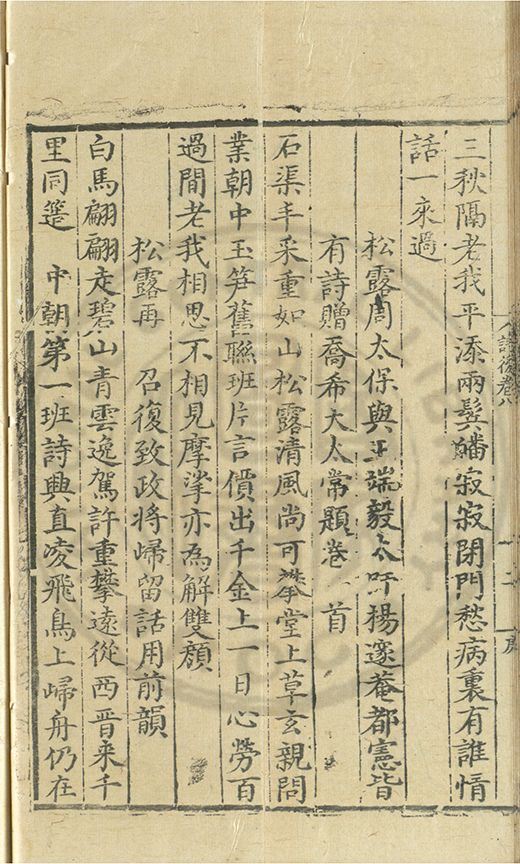 三秋隔老我平添兩鬂皤寂寂閉門愁病裏有誰情
話一來過
松露周太保與王端毅太吁揚邃菴都憲皆
有詩贈喬希大太常題卷 首
石渠丰采重如山松露清風尚可攀堂上草玄親問
業朝中玉笋舊聮班片言價出千金上一日心勞百
過間老我相思不相見摩挲亦為解雙顔
松露再 召復致政將歸留話用前韻
白馬翩翩走碧山青雲逸駕許重攀遠從西晋来千
里同簉 中朝第一班詩興直凌飛鳥上歸舟仍在
詩後卷八
二